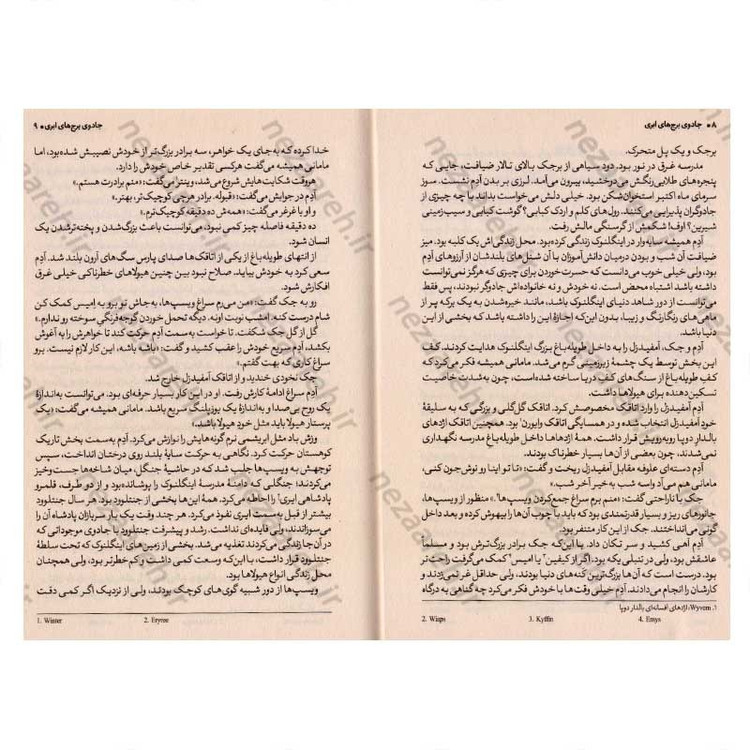 ۸ • جادوی برج‌های ابری
برجک و یک پل متحرک.
مدرسه غرق در نور بود. دود سیاهی از برجک بالای تالار ضیافت، جایی که
پنجره‌های طلایی‌رنگش می‌درخشید، بیرون می‌آمد. لرزی بر بدن آدِم نشست. سوز
سرمای ماه اکتبر استخوان‌شکن بود. خیلی دلش می‌خواست بداند با چه چیزی از
جادوگران پذیرایی می‌کنند. رول‌های کلم و اردک کبابی؟ گوشت کبابی و سیب‌زمینی
شیرین؟ اوف! شکمش از گرسنگی مالش رفت.
آدِم همیشه سایه‌وار در اینگلنوک زندگی کرده‌بود. محل زندگی‌اش یک کلبه بود. میز
ضیافت آن شب و بودن درمیان دانش‌آموزان با آن شنل‌های بلندشان از آرزوهای آدِم
بود، ولی خیلی خوب می‌دانست که حسرت‌خوردن برای چیزی که هرگز نمی‌توانست
داشته باشد اشتباه محض است. نه خودش و نه خانواده‌اش جادوگر نبودند، پس فقط
می‌توانست از دور شاهد دنیای اینگلنوک باشد، مانند خیره‌شدن به یک برکه پر از
ماهی‌های رنگارنگ و زیبا، بدون این‌که اجازهٔ این را داشته باشد که بخشی از این
دنیا باشد.
آدِم و جک، آمفیدزل را به داخل طویله‌باغ بزرگ اینگلنوک هدایت کردند. کف
این بخش توسط یک چشمهٔ زیرزمینی گرم می‌شد. مامانی همیشه فکر می‌کرد که
کف طویله‌باغ از سنگ‌های کف دریا ساخته شده‌است، چون به‌شدت خاصیت
تسکین‌دهنده برای هیولاها داشت.
آدِم آمفیدزل را وارد اتاقک مخصوصش کرد. اتاقک گل‌گلی و بزرگی که به سلیقهٔ
خود آمفیدزل انتخاب شده و در همسایگی اتاقک وایورن¹ بود. همچنین اتاقک اژدهای
بالدار دوپا روبه‌رویش قرار داشت. همهٔ اژدهاها داخل طویله‌باغ مدرسه نگهداری
نمی‌شدند، چون بعضی از آن‌ها بسیار خطرناک بودند.
آدِم دسته‌ای علوفه مقابل آمفیدزل ریخت و گفت: «تا تو اینا رو نوش‌جون کنی،
مامانی هم می‌آد واسه شب به‌خیر آخر شب.»
جک با ناراحتی گفت: «منم برم سراغ جمع‌کردن ویسپ‌ها².» منظور از ویسپ‌ها،
جانورهای ریز و بسیار قدرتمندی بود که باید با چوب آن‌ها را بیهوش کرده و بعد داخل
گونی می‌انداختند. جک از این کار متنفر بود.
آدِم آهی کشید و سر تکان داد. با این‌که جک برادر بزرگ‌ترش بود و مسلماً
عاشقش بود، ولی در تنبلی یکه بود. اگر از کیفین³ یا امیس⁴ کمک می‌گرفت راحت‌تر
بود. درست است که آن‌ها بزرگ‌ترین کنه‌های دنیا بودند. ولی حداقل غر نمی‌زدند و
کارشان را انجام می‌دادند. آدِم خیلی وقت‌ها با خودش فکر می‌کرد چه گناهی به درگاه
1. Wyvern، اژدهای افسانه‌ای بالدار دوپا
2. Wisps 3. Kyffin 4. Emys
جادوی برج‌های ابری • ۹
خدا کرده که به‌جای یک خواهر، سه برادر بزرگ‌تر از خودش نصیبش شده‌بود، اما
مامانی همیشه می‌گفت هرکسی تقدیر خاص خودش را دارد.
هروقت شکایت‌هایش شروع می‌شد، وینتر¹ می‌گفت: «منم برادرت هستم.»
آدِم در جوابش می‌گفت: «قبوله. برادر هرچی کوچیک‌تر، بهتر.»
و او با غرغر می‌گفت: «همه‌ش ده دقیقه کوچیک‌ترم.»
ده دقیقه فاصله چیز کمی نبود، می‌توانست باعث بزرگ‌شدن و پخته‌ترشدن یک
انسان شود.
از انتهای طویله‌باغ از یکی از اتاقک‌ها صدای پارس سگ‌های آرون بلند شد. آدِم
سعی کرد به خودش بیاید. صلاح نبود بین چنین هیولاهای خطرناکی خیلی غرق
افکارش شود.
رو به جک گفت: «من می‌رم سراغ ویسپ‌ها، به‌جاش تو برو به اِمیس کمک کن
شام درست کنه. امشب نوبت اونه. دیگه تحمل خوردن گوجه‌فرنگی سوخته رو ندارم.»
گل از گل جک شکفت. تا خواست به سمت آدِم حرکت کند تا خواهرش را به آغوش
بکشد، آدِم سریع خودش را عقب کشید و گفت: «باشه باشه، این کار لازم نیست. برو
سراغ کاری که بهت گفتم.»
جک نخودی خندید و از اتاقک آمفیدزل خارج شد.
آدِم سراغ ادامهٔ کارش رفت. او در این کار بسیار حرفه‌ای بود. می‌توانست به‌اندازهٔ
یک روح بی‌صدا و به‌اندازهٔ یک یوزپلنگ سریع باشد. مامانی همیشه می‌گفت: «یک
پرستار هیولا باید مثل خودِ هیولا باشد.»
وزش باد مثل ابریشمی نرم گونه‌هایش را نوازش می‌کرد. آدِم به‌سمت بخش تاریک
کوهستان حرکت کرد. نگاهی به حرکت سایهٔ بلند روی درختان انداخت، سپس
توجهش به ویسپ‌ها جلب شد که در حاشیهٔ جنگل، میان شاخه‌ها جست‌وخیز
می‌کردند؛ جنگلی که دامنهٔ مدرسهٔ اینگلنوک را پوشانده‌بود و از دو طرف، قلمرو
پادشاهی ایری² را احاطه می‌کرد. همهٔ این‌ها بخشی از جنتلوود بود. هر سال جنتلوود
بیشتر از قبل به‌سمت ایری نفوذ می‌کرد. هر چند وقت یک بار سربازان پادشاه آن را
می‌سوزاندند، ولی فایده‌ای نداشت. رشد و پیشرفت جنتلوود با جادوی موجوداتی که
در آن‌جا زندگی می‌کردند تغذیه می‌شد. بخشی از زمین‌های اینگلنوک که تحت سلطهٔ
جنتلوود قرار داشت، با این‌که وسعت کمی داشت و کم‌خطرتر بود، ولی همچنان
محل زندگی انواع هیولاها بود.
ویسپ‌ها از دور شبیه گوی‌های کوچک بودند، ولی از نزدیک اگر کمی دقت
1. Winter 2. Eryree
nezaareh.ir